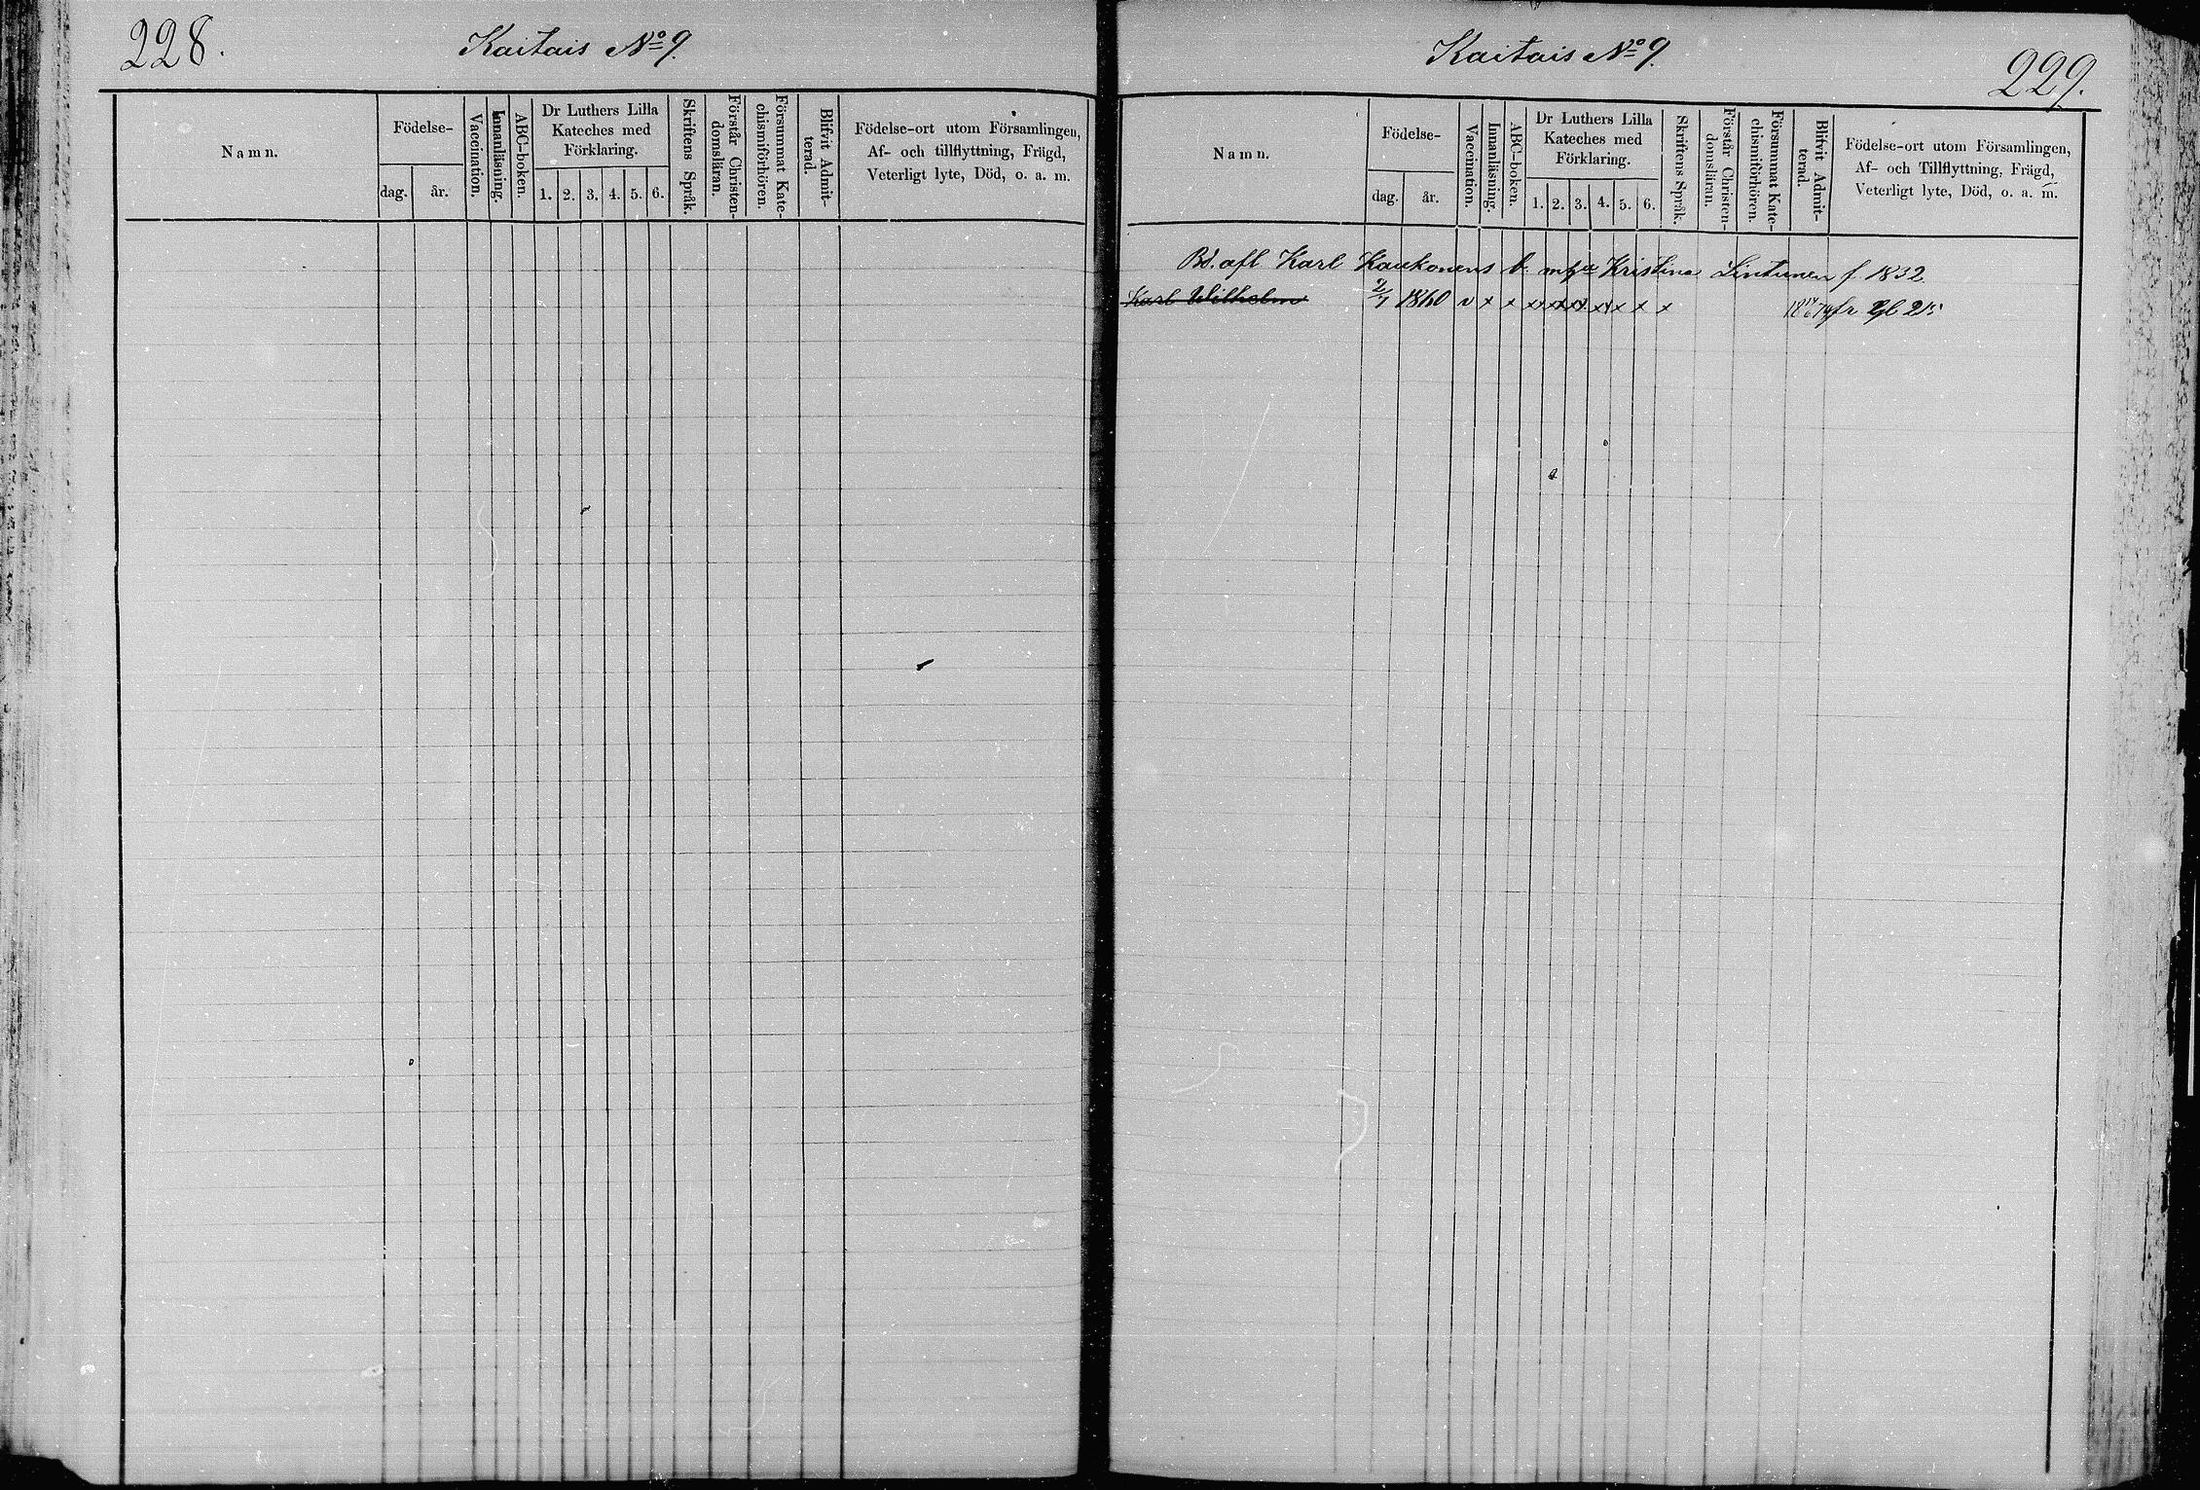 228.
Kaitais No 9.
Namn.
Födelse-
dag.
år.
Vaccination.
Innanläsning.
ABC-boken.
Dr Luthers Lilla
Kateches med
Förklaring.
1. 2. 3. 4. 5. 6.
Skriftens Språk.
Förstår Christen-
domsläran.
Försummat Kate-
chismiförhören.
Blifvit Admit-
terad.
Födelse-ort utom Församlingen,
Af- och tillflyttning, Frägd,
Veterligt lyte, Död, o. a. m.
Kaitais No 9.
229.
Namn.
Födelse-
dag.
år.
Vaccination.
Innanläsning.
ABC-boken.
Dr Luthers Lilla
Kateches med
Förklaring.
1. 2. 3. 4. 5. 6.
Skriftens Språk.
Förstår Christen-
domsläran.
Försummat Kate-
chismiförhören.
Blifvit Admit-
terad.
Födelse-ort utom Församlingen,
Af- och Tillflyttning, Frägd,
Veterligt lyte, Död, o. a. m.
Bd. afl Karl Kaukonens Kristina Lintunen f. 1832.
Karl Wilhelm 2/1 1860 v x x x x x x x x x fr